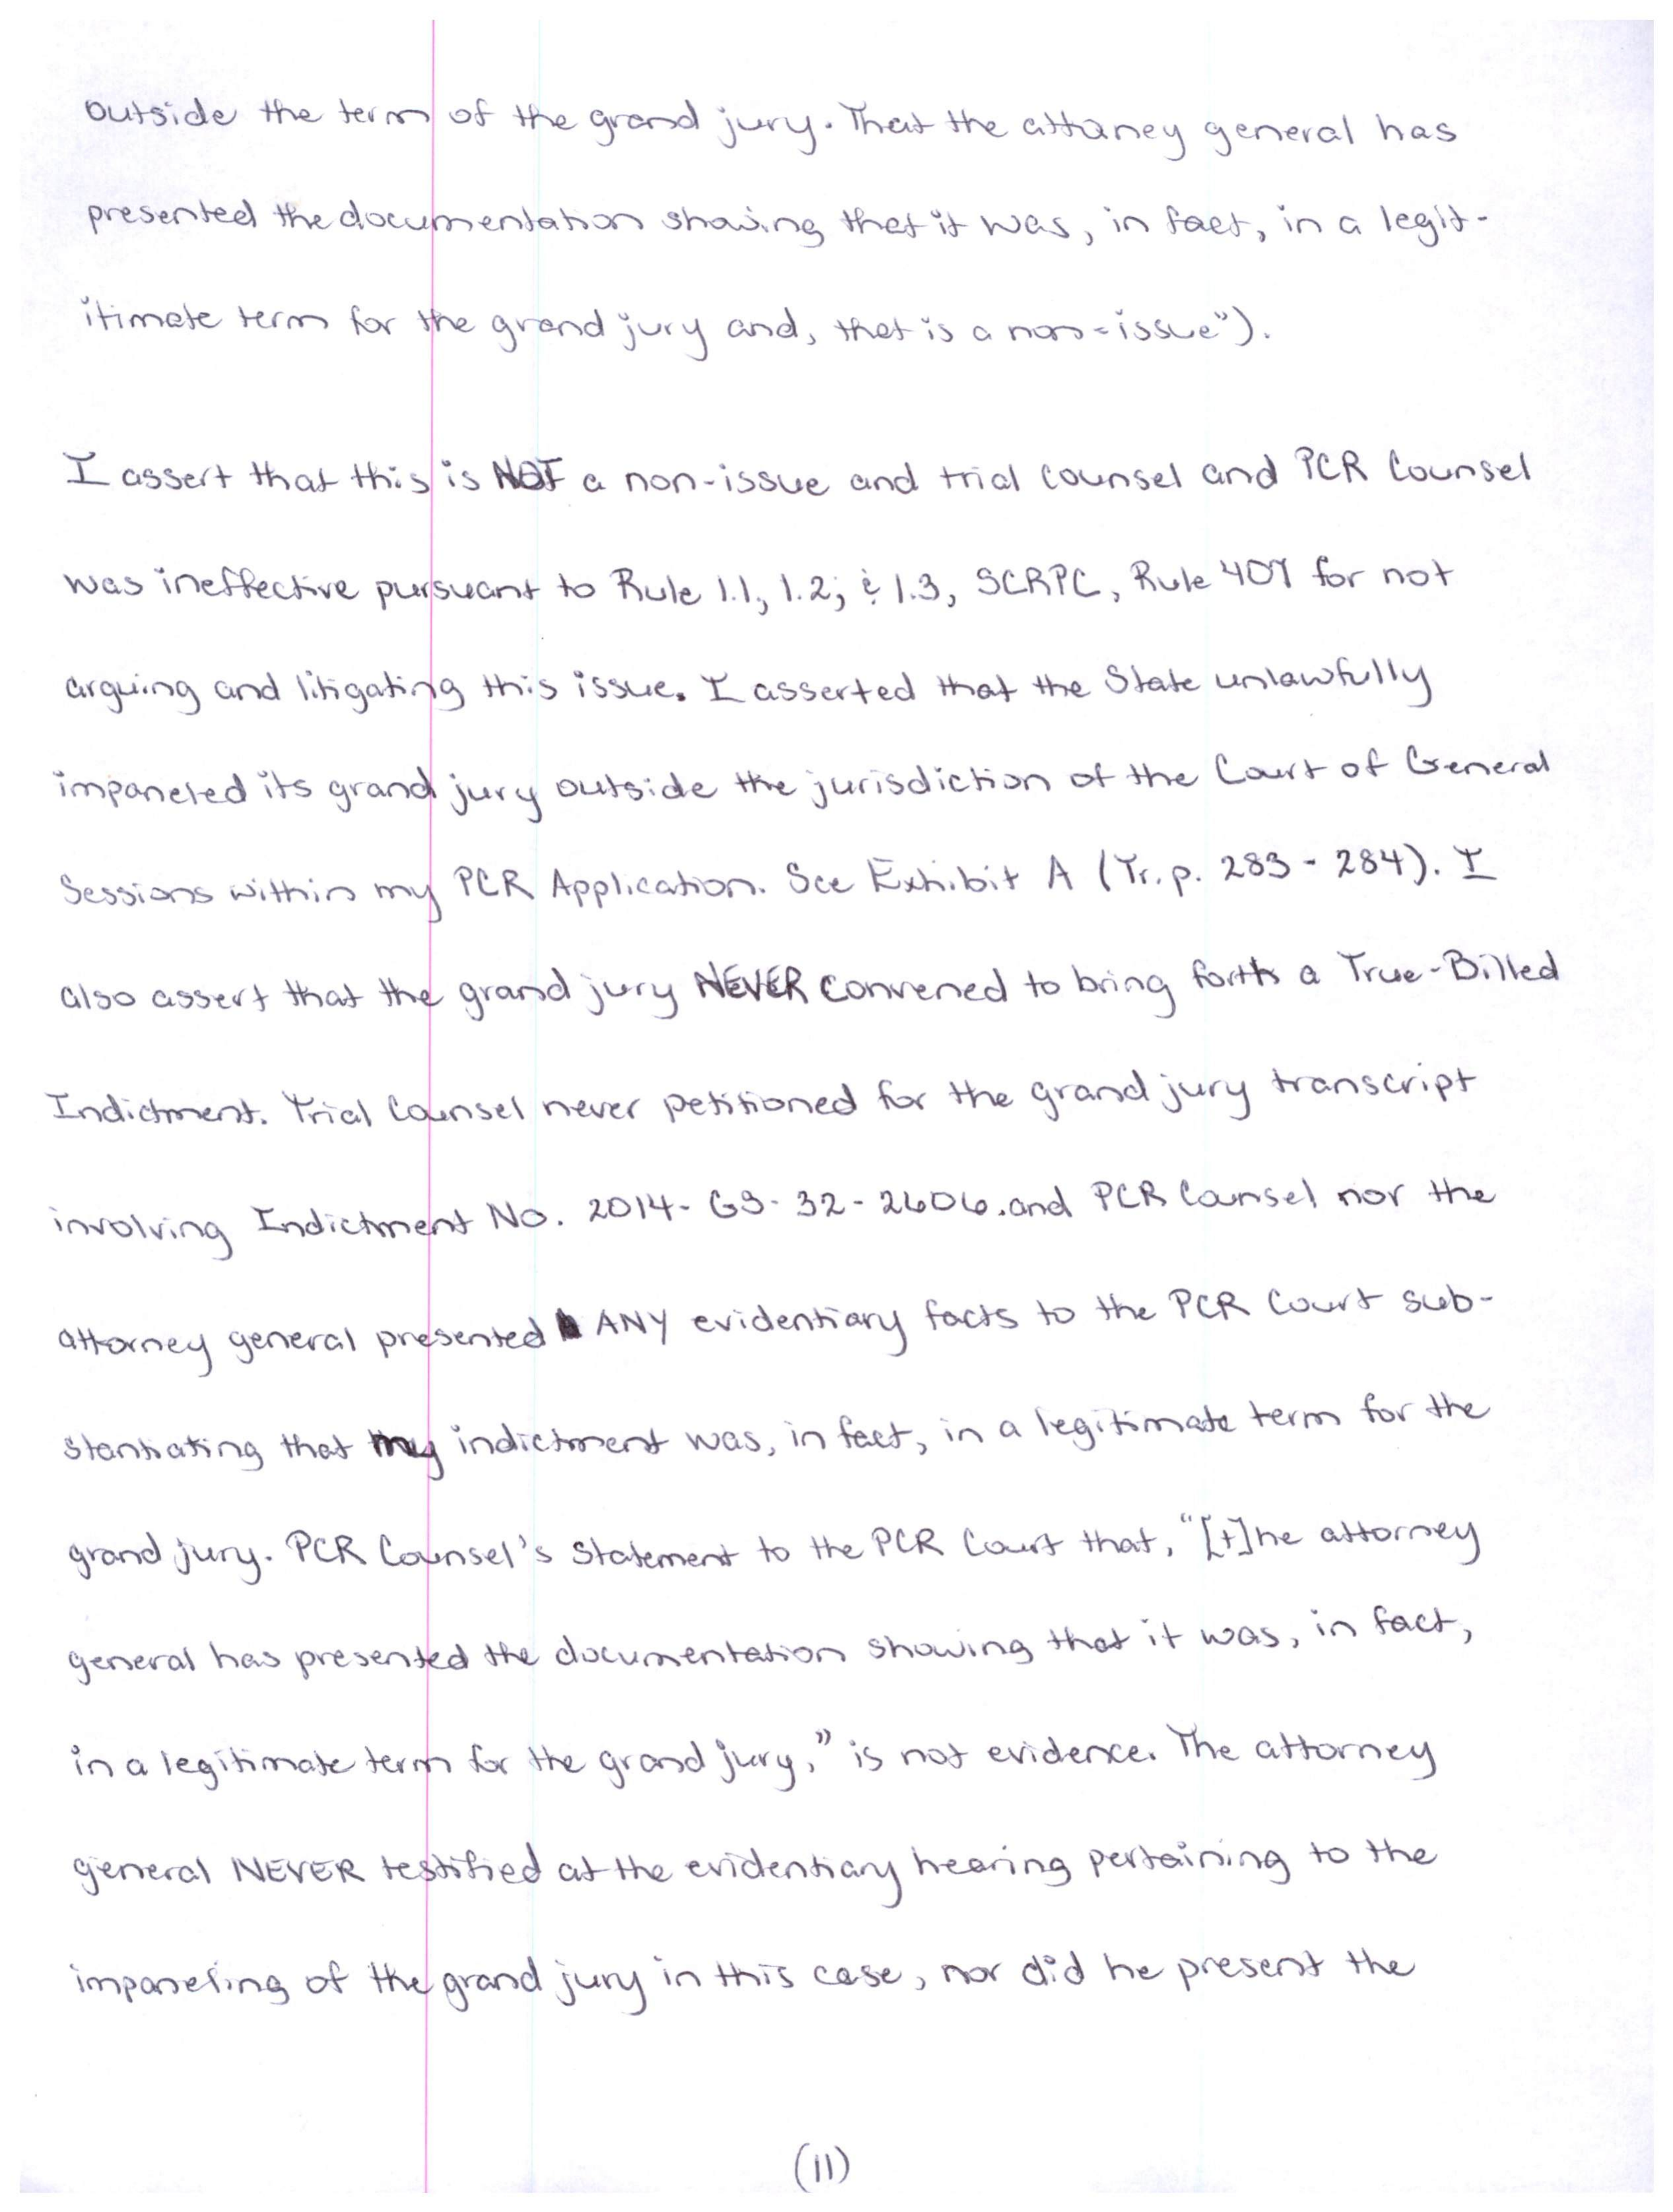 outside the term of the grand jury. That the attorney general has
presented the documentation showing that it was, in fact, in a legit-
itimate term for the grand jury and, that is a non-issue").
I assert that this is NOT a non-issue and trial counsel and PCR Counsel
was ineffective pursuant to Rule 1.1, 1.2, & 1.3, SCRPC, Rule 407 for not
arguing and litigating this issue. I asserted that the State unlawfully
impaneled its grand jury outside the jurisdiction of the Court of General
Sessions within my PCR Application. See Exhibit A (Tr. p. 283 - 284). I
also assert that the grand jury NEVER convened to bring forth a True-Billed
Indictment. Trial Counsel never petitioned for the grand jury transcript
involving Indictment No. 2014-GS-32-2606. and PCR Counsel nor the
attorney general presented ANY evidentiary facts to the PCR Court sub-
stantiating that my indictment was, in fact, in a legitimate term for the
grand jury. PCR Counsel's Statement to the PCR Court that, "[t]he attorney
general has presented the documentation showing that it was, in fact,
in a legitimate term for the grand jury," is not evidence. The attorney
general NEVER testified at the evidentiary hearing pertaining to the
impaneling of the grand jury in this case, nor did he present the
(11)